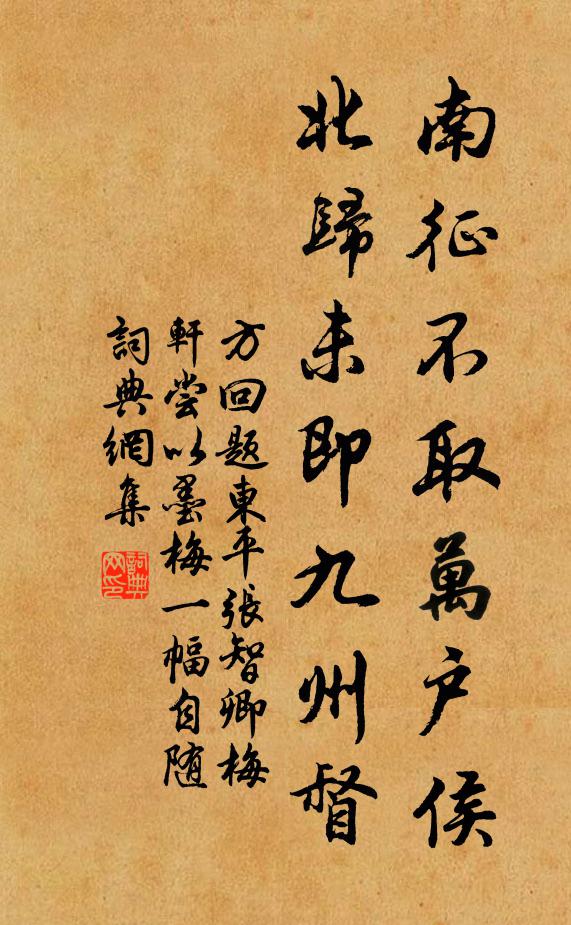 南征不取萬户侯
北歸未即九州督
方回题東平張智卿梅
軒嘗以墨梅一幅自随
詞典網集
詞典网印